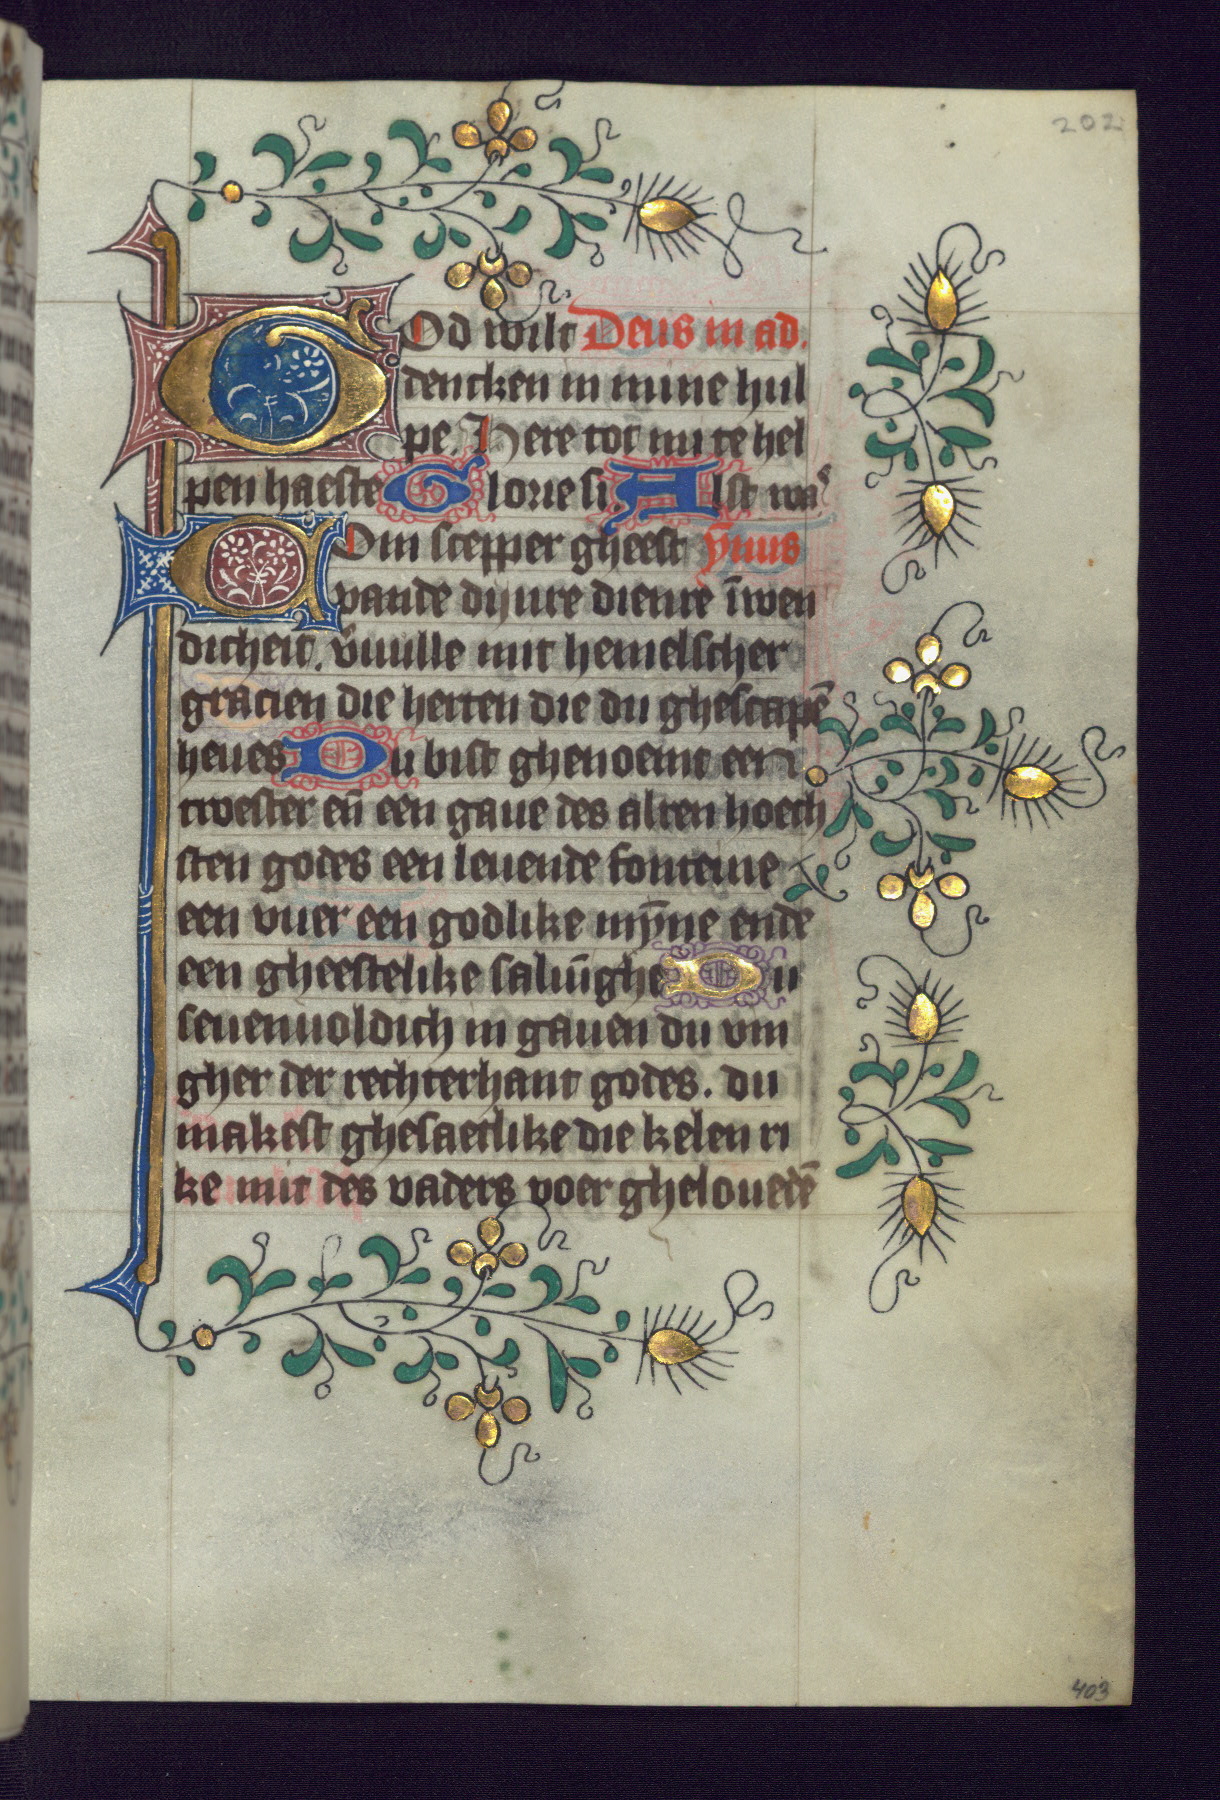 202
GOd wilt Deus in ad.
dencken in mine hul
pe. Here tot mi te hel
pen haeste Glorie si. Alst was
COm scepper gheest ȳnus
vande dijnre dienre īwen
dicheit. v̄uulle mit hemelscher
gracien die herten die du ghescapē
heues Du bist ghenoemt een
twester eñ een gaue des alren hoech
sten godes een leuende fonteine
een vuer een godlike mȳne ende
een gheestelike saluīghe Du
seuenuoldich in gauen du vin
gher der rechterhant godes. du
makest ghesaetlike die kelen ri
ke mit des vaders voer ghelouedē
403